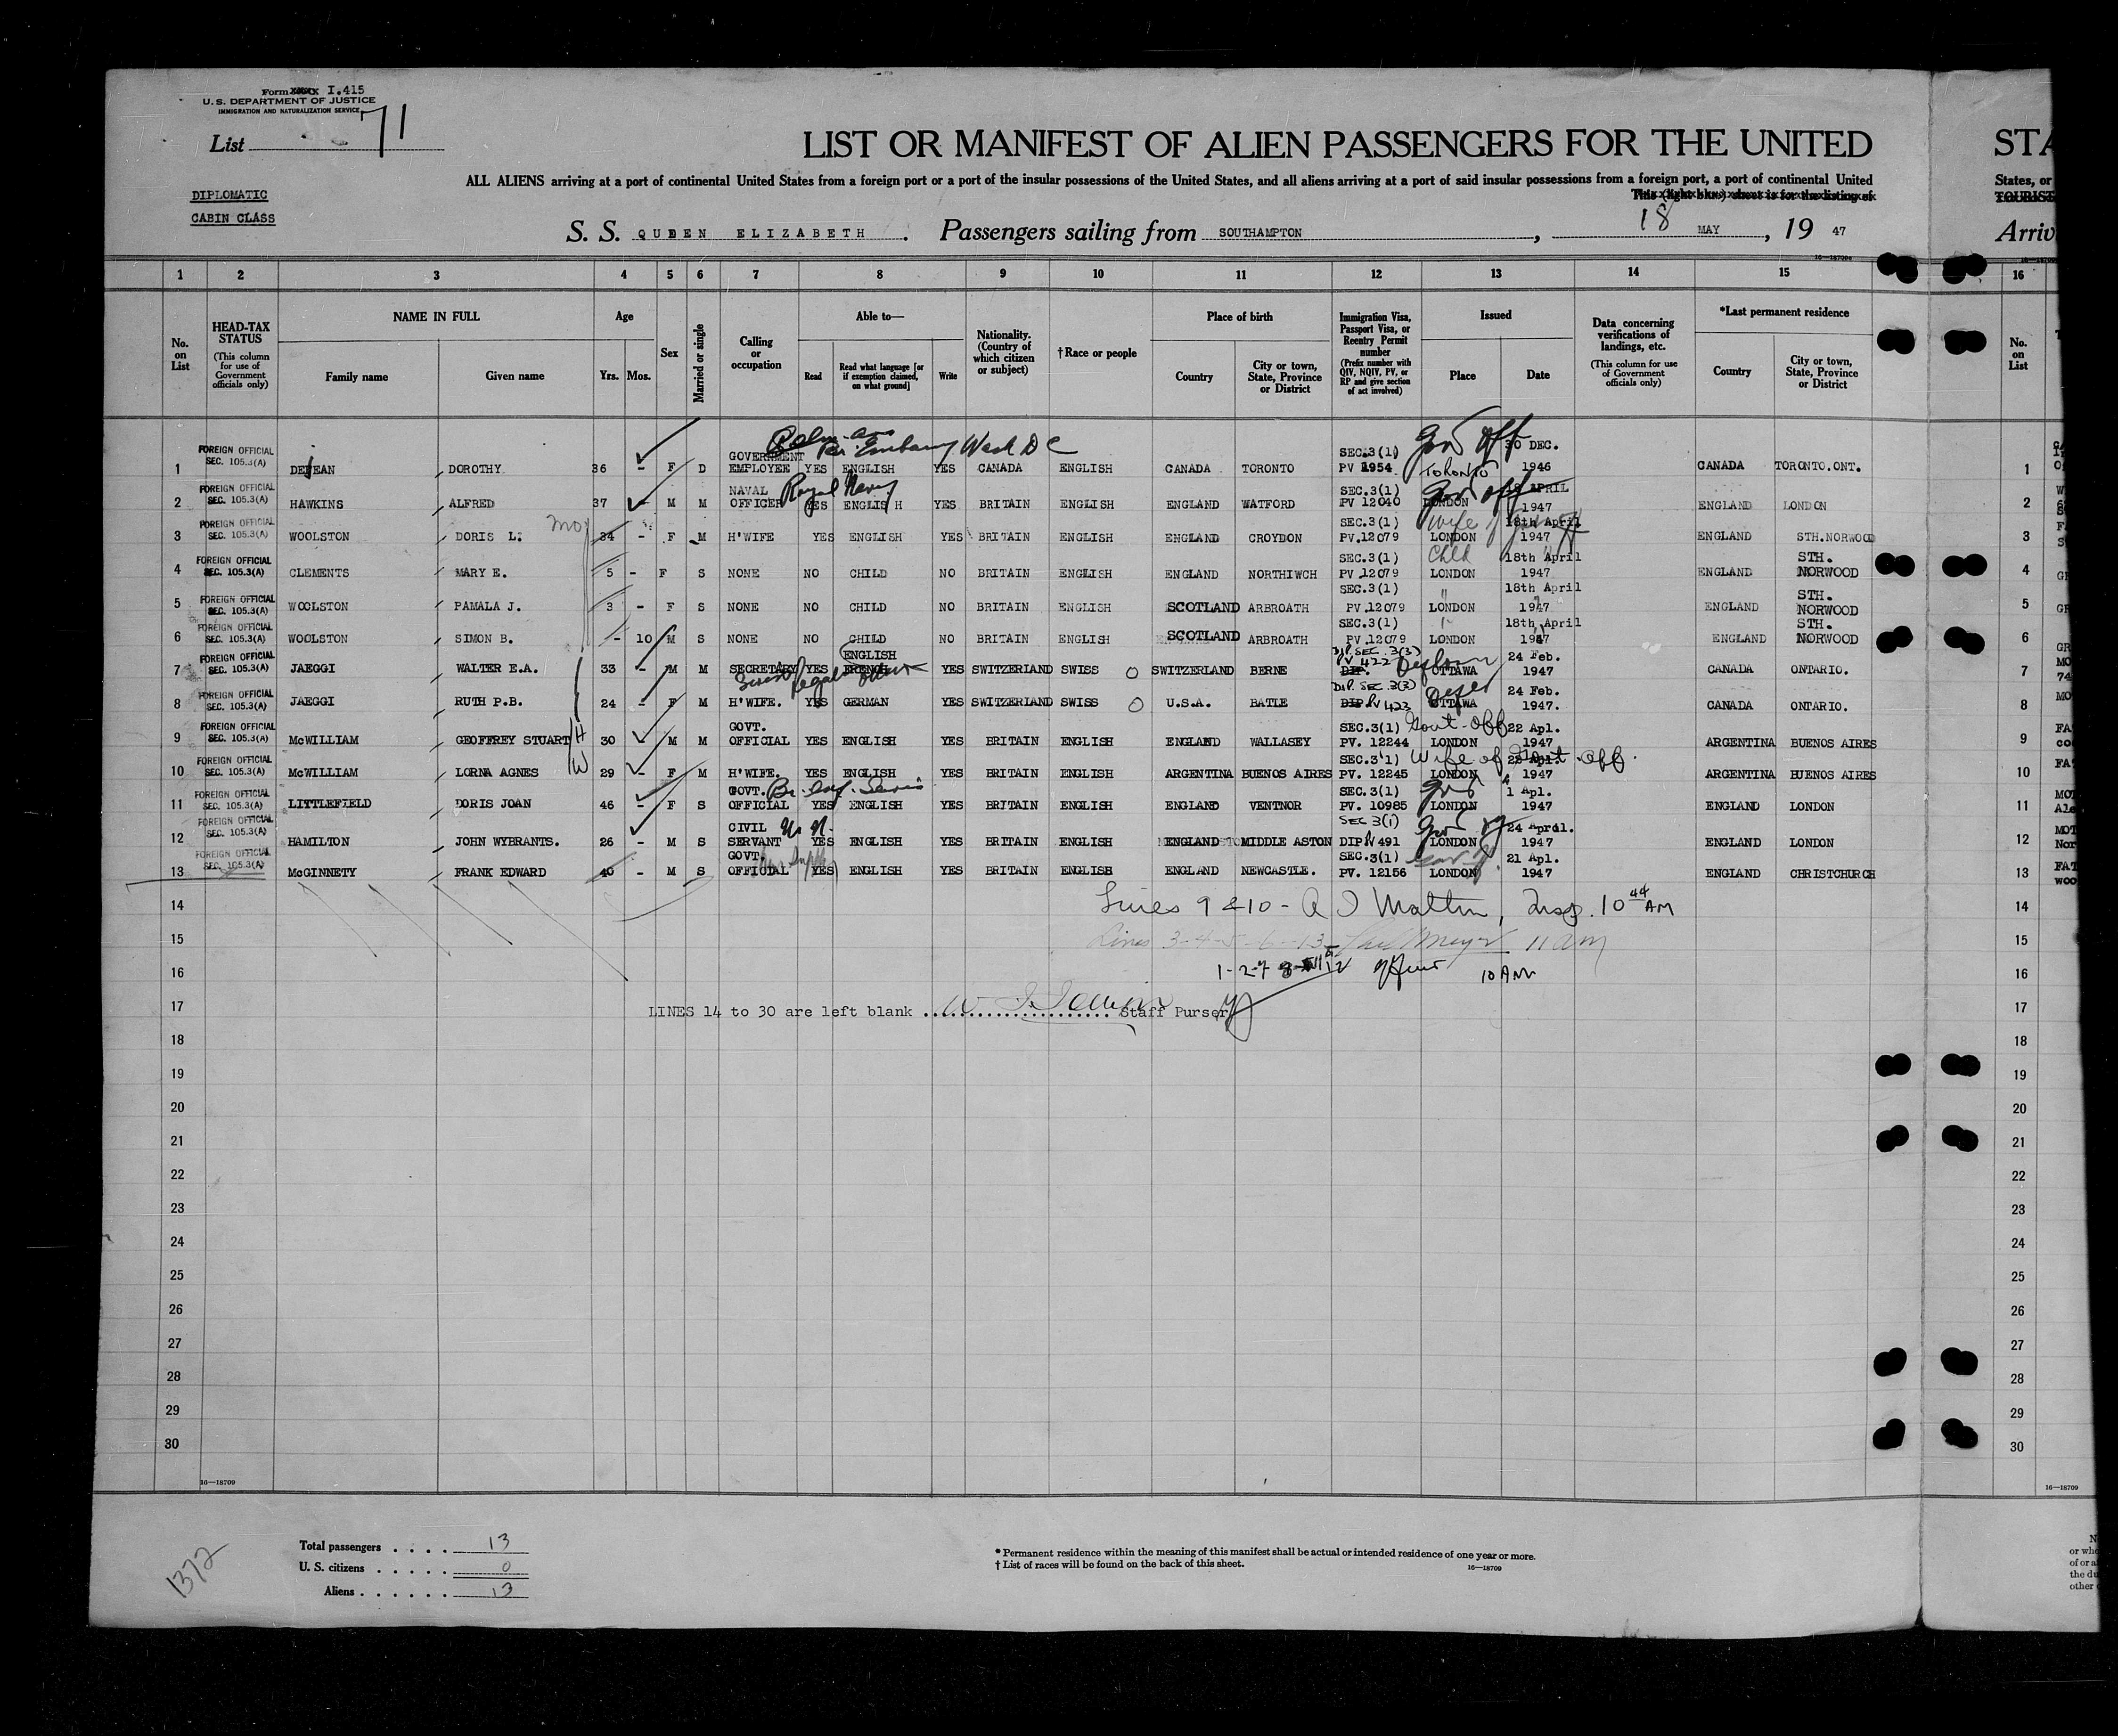 Form I.415
U. S. DEPARTMENT OF JUSTICE
IMMIGRATION AND NATURALIZATION SERVICE
List 71
DIPLOMATIC
CABIN CLASS
LIST OR MANIFEST OF ALIEN PASSENGERS FOR THE UNITED STA
ALL ALIENS arriving at a port of continental United States from a foreign port or a port of the insular possessions of the United States, and all aliens arriving at a port of said insular possessions from a foreign port, a port of continental United States, or
This (light blue) sheet is for the listing of TOURIST
S. S. QUEEN ELIZABETH . Passengers sailing from SOUTHAMPTON , 18 MAY , 19 47 Arriv
1 2 3 4 5 6 7 8 9 10 11 12 13 14 15 16
No. on List
HEAD-TAX STATUS (This column for use of Government officials only)
NAME IN FULL Family name Given name
Age Yrs. Mos.
Sex
Married or single
Calling or occupation
Able to— Read Read what language [or if exemption claimed, on what ground] Write
Nationality. (Country of which citizen or subject)
†Race or people
Place of birth Country City or town, State, Province or District
Immigration Visa, Passport Visa, or Reentry Permit number (Prefix number with QIV, NQIV, PV, or RP and give section of act involved)
Issued Place Date
Data concerning verifications of landings, etc. (This column for use of Government officials only)
*Last permanent residence Country City or town, State, Province or District
No. on List
Embassy Wash D C
1 FOREIGN OFFICIAL SEC. 105.3(A) DEJEAN DOROTHY 36 - F D GOVERNMENT EMPLOYEE YES ENGLISH YES CANADA ENGLISH CANADA TORONTO SEC.3(1) PV 1954 Gov Off TORONTO 30 DEC. 1946 CANADA TORONTO.ONT. 1
2 FOREIGN OFFICIAL SEC. 105.3(A) HAWKINS ALFRED 37 - M M NAVAL OFFICER Royal Navy YES ENGLISH YES BRITAIN ENGLISH ENGLAND WATFORD SEC.3(1) PV 12040 Gov Off LONDON 18 APRIL 1947 ENGLAND LONDON 2
3 FOREIGN OFFICIAL SEC. 105.3(A) WOOLSTON DORIS L. mo 34 - F M H'WIFE YES ENGLISH YES BRITAIN ENGLISH ENGLAND CROYDON SEC.3(1) PV.12079 Wife of LONDON 18th April 1947 ENGLAND STH.NORWOOD 3
4 FOREIGN OFFICIAL SEC. 105.3(A) CLEMENTS MARY E. 5 - F S NONE NO CHILD NO BRITAIN ENGLISH ENGLAND NORTHIWCH SEC.3(1) PV 12079 Child LONDON 18th April 1947 ENGLAND STH. NORWOOD 4
5 FOREIGN OFFICIAL SEC. 105.3(A) WOOLSTON PAMALA J. 3 - F S NONE NO CHILD NO BRITAIN ENGLISH SCOTLAND ARBROATH SEC.3(1) PV.12079 " LONDON 18th April 1947 ENGLAND STH. NORWOOD 5
6 FOREIGN OFFICIAL SEC. 105.3(A) WOOLSTON SIMON B. - 10 M S NONE NO CHILD NO BRITAIN ENGLISH SCOTLAND ARBROATH SEC.3(1) PV.12079 LONDON 18th April 1947 ENGLAND STH. NORWOOD 6
7 FOREIGN OFFICIAL SEC. 105.3(A) JAEGGI WALTER E.A. 33 - M M SECRETARY YES ENGLISH FRENCH YES SWITZERLAND SWISS SWITZERLAND BERNE DIP. SEC. 3(3) PV 422 DIP. OTTAWA 24 Feb. 1947 CANADA ONTARIO. 7
Swiss Legation
8 FOREIGN OFFICIAL SEC. 105.3(A) JAEGGI RUTH P.B. 24 - F M H'WIFE. YES GERMAN YES SWITZERLAND SWISS U.S.A. BATLE DIP. SEC. 3(3) DIP. PV 423 OTTAWA 24 Feb. 1947. CANADA ONTARIO. 8
9 FOREIGN OFFICIAL SEC. 105.3(A) McWILLIAM GEOFFREY STUART H 30 - M M GOVT. OFFICIAL YES ENGLISH YES BRITAIN ENGLISH ENGLAND WALLASEY SEC.3(1) PV. 12244 Govt. Off LONDON 22 Apl. 1947 ARGENTINA BUENOS AIRES 9
10 FOREIGN OFFICIAL SEC. 105.3(A) McWILLIAM LORNA AGNES W 29 - F M H'WIFE. YES ENGLISH YES BRITAIN ENGLISH ARGENTINA BUENOS AIRES SEC.3(1) PV. 12245 Wife of Govt. Off. LONDON 22 Apl. 1947 ARGENTINA BUENOS AIRES 10
11 FOREIGN OFFICIAL SEC. 105.3(A) LITTLEFIELD DORIS JOAN 46 - F S GOVT. OFFICIAL YES ENGLISH YES BRITAIN ENGLISH ENGLAND VENTNOR SEC.3(1) PV. 10985 Gov LONDON 1 Apl. 1947 ENGLAND LONDON 11
12 FOREIGN OFFICIAL SEC. 105.3(A) HAMILTON JOHN WYBRANTS. 26 - M S CIVIL SERVANT U. N. YES ENGLISH YES BRITAIN ENGLISH ENGLAND MIDDLE ASTON SEC 3(1) DIP.V 491 Gov LONDON 24 April. 1947 ENGLAND LONDON 12
13 FOREIGN OFFICIAL SEC. 105.3(A) McGINNETY FRANK EDWARD 40 - M S GOVT. OFFICIAL YES ENGLISH YES BRITAIN ENGLISH ENGLAND NEWCASTLE. SEC.3(1) PV. 12156 LONDON 21 Apl. 1947 ENGLAND CHRISTCHURCH 13
14 Lines 9 & 10 - Insp. 10 44 AM 14
15 Lines 3-4-5-6-13 11 am 15
16 1-2-7 8 12 10 AM 16
17 LINES 14 to 30 are left blank Staff Purser 17
18 18
19 19
20 20
21 21
22 22
23 23
24 24
25 25
26 26
27 27
28 28
29 29
30 30
16—18709 16—18709
Total passengers . . . . 13
U. S. citizens . . . . . 0
Aliens . . . . . . 13
1372
* Permanent residence within the meaning of this manifest shall be actual or intended residence of one year or more.
† List of races will be found on the back of this sheet.
16—18709